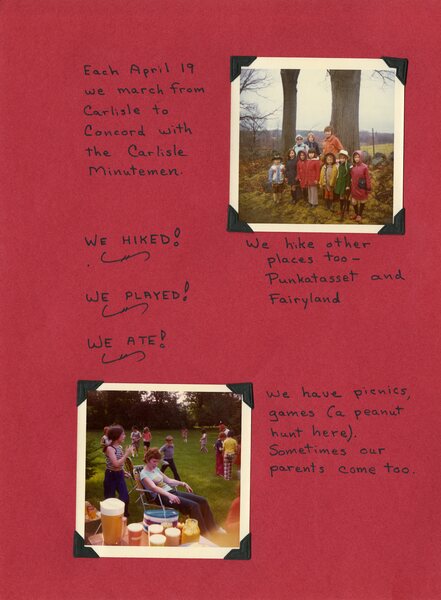 Each April 19
we march from
Carlisle to
Concord with
the Carlisle
Minutemen.
WE HIKED!
We hike other
places too –
Punkatasset and
Fairyland
WE PLAYED!
WE ATE!
We have picnics,
games (a peanut
hunt here).
Sometimes our
parents come too.